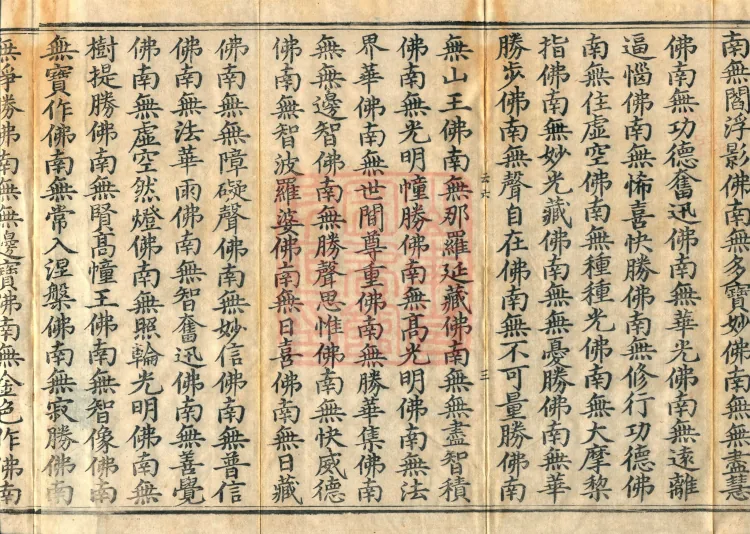 南無閻浮影佛南無多寶妙佛南無無盡慧
佛南無功德奮迅佛南無華光佛南無遠離
逼惱佛南無怖喜快勝佛南無修行功德佛
南無住虛空佛南無種種光佛南無大摩黎
指佛南無妙光藏佛南無無憂勝佛南無華
勝步佛南無聲自在佛南無不可量勝佛南
云六
三
無山王佛南無那羅延藏佛南無無盡智積
佛南無光明幢勝佛南無髙光明佛南無法
界華佛南無世間尊重佛南無勝華集佛南
無無邊智佛南無勝聲思惟佛南無快威德
佛南無智波羅婆佛南無日喜佛南無日藏
佛南無無障礙聲佛南無妙信佛南無普信
佛南無法華雨佛南無智奮迅佛南無善覺
佛南無虛空然燈佛南無照輪光明佛南無
樹提勝佛南無賢髙幢王佛南無智像佛南
無寶作佛南無常入涅槃佛南無寂勝佛南
無爭勝佛南無無邊寶佛南無金色作佛南